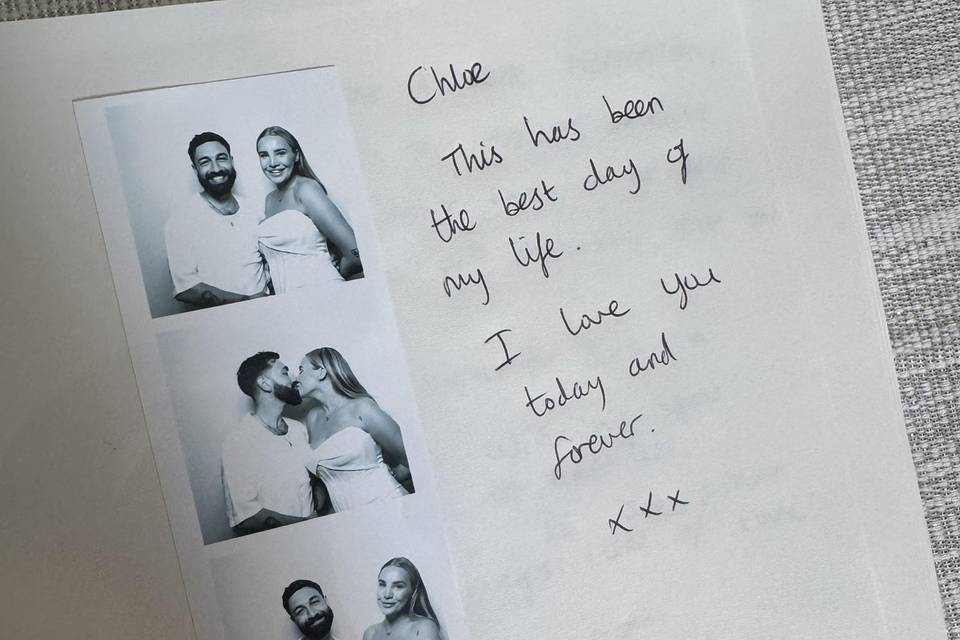 Chloe
This has been
the best day of
my life.
I love you
today and
forever.
xxx